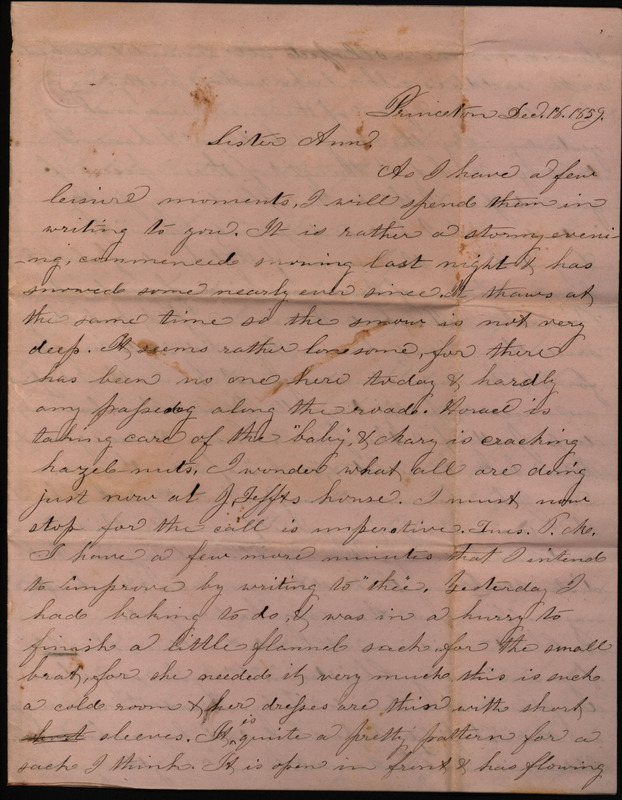 Princeton Dec. 18. 1859.
Sister Ann.
As I have a few
leisure moments, I will spend them in
writing to you. It is rather a stormy eveni-
-ng, commenced snowing last night & has
snowed some nearly ever since. It thaws at
the same time so the snow is not very
deep. It seems rather lonesome, for there
has been no one here today & hardly
any passing along the road. Horace is
taking care of the "baby", & Mary is cracking
hazel-nuts. I wonder what all are doing
just now at J, Teffts house. I must now
stop for the call is imperative. Tues. P. M.
I have a few more minutes that I intend
to improve by writing to "thee". Yesterday I
had baking to do, & was in a hurry to
finish a little flannel sack, for the small
brat, for she needed it very much this is such
a cold room & her dresses are thin with short
sleeves. It is quite a pretty pattern for a
sack I think. It is open in front & has flowing